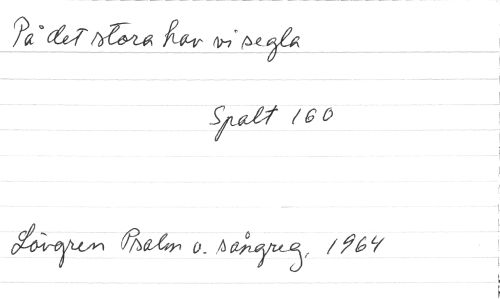 På det stora hav vi segla
Spalt 160
Lövgren Psalm o. sångreg, 1964